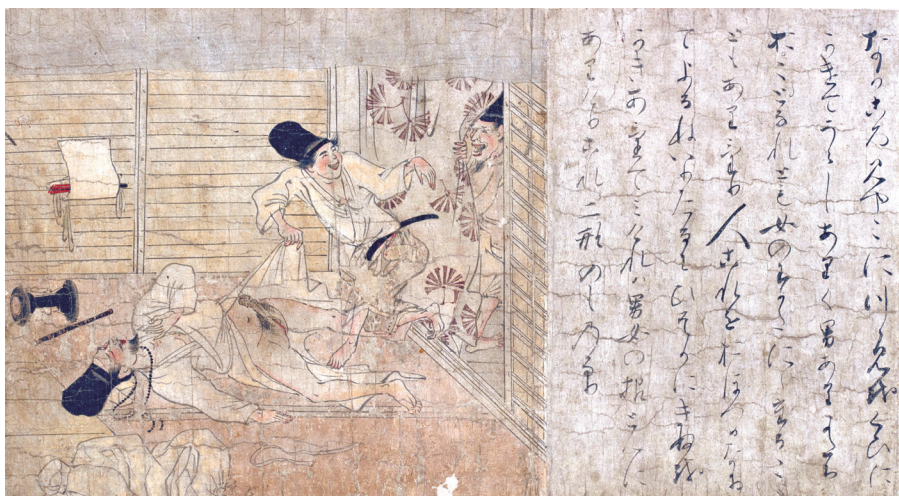 なかころみやこにつゝみをくひに
かけてうらしありく男ありかたち
おとこなれとも女のすかたににたるこ
ともありけり人これをおほつかなかり
てよるねいりたるにひそかにきぬを
かきあけてみけれは男女の根ともに
ありけりこれ二形のものなり